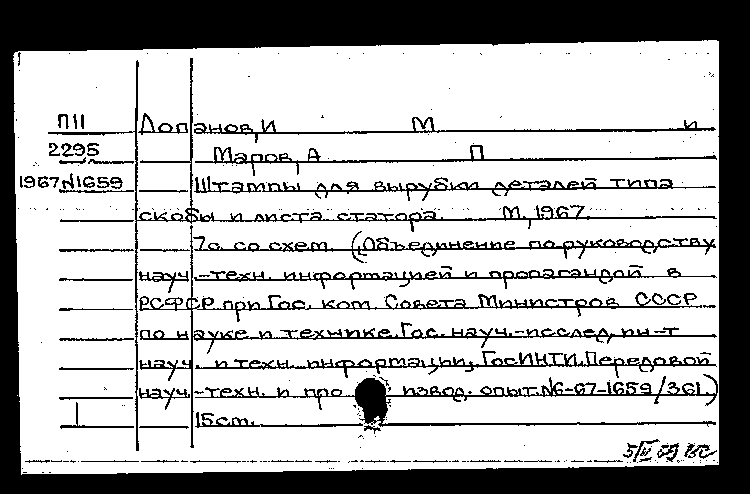 П11 Лопанов, И М и
2295 Маров, А П
1967 №1659 Штампы для вырубки деталей типа
скобы и листа статора. М., 1967.
7с. со схем. (Объединение по руководству
науч.-техн. информацией и пропагандой в
РСФСР при Гос. ком. Совета Министров СССР
по науке и технике. Гос. науч.-исслед. ин-т
науч. и техн. информации, ГосИНТИ. Передовой
науч.-техн. и про извод. опыт. №6-67-1659/361.)
1 15ст.